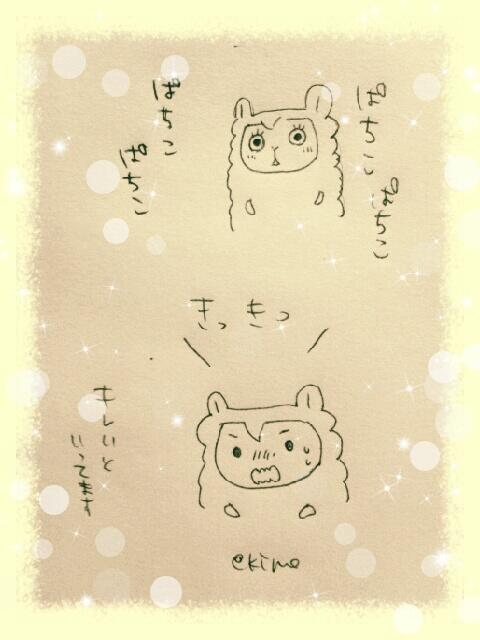 ぱちこ
ぱちこ
ぱちこ
ぱちこ
きっ きっ
キレいと
いってきな
ekimo